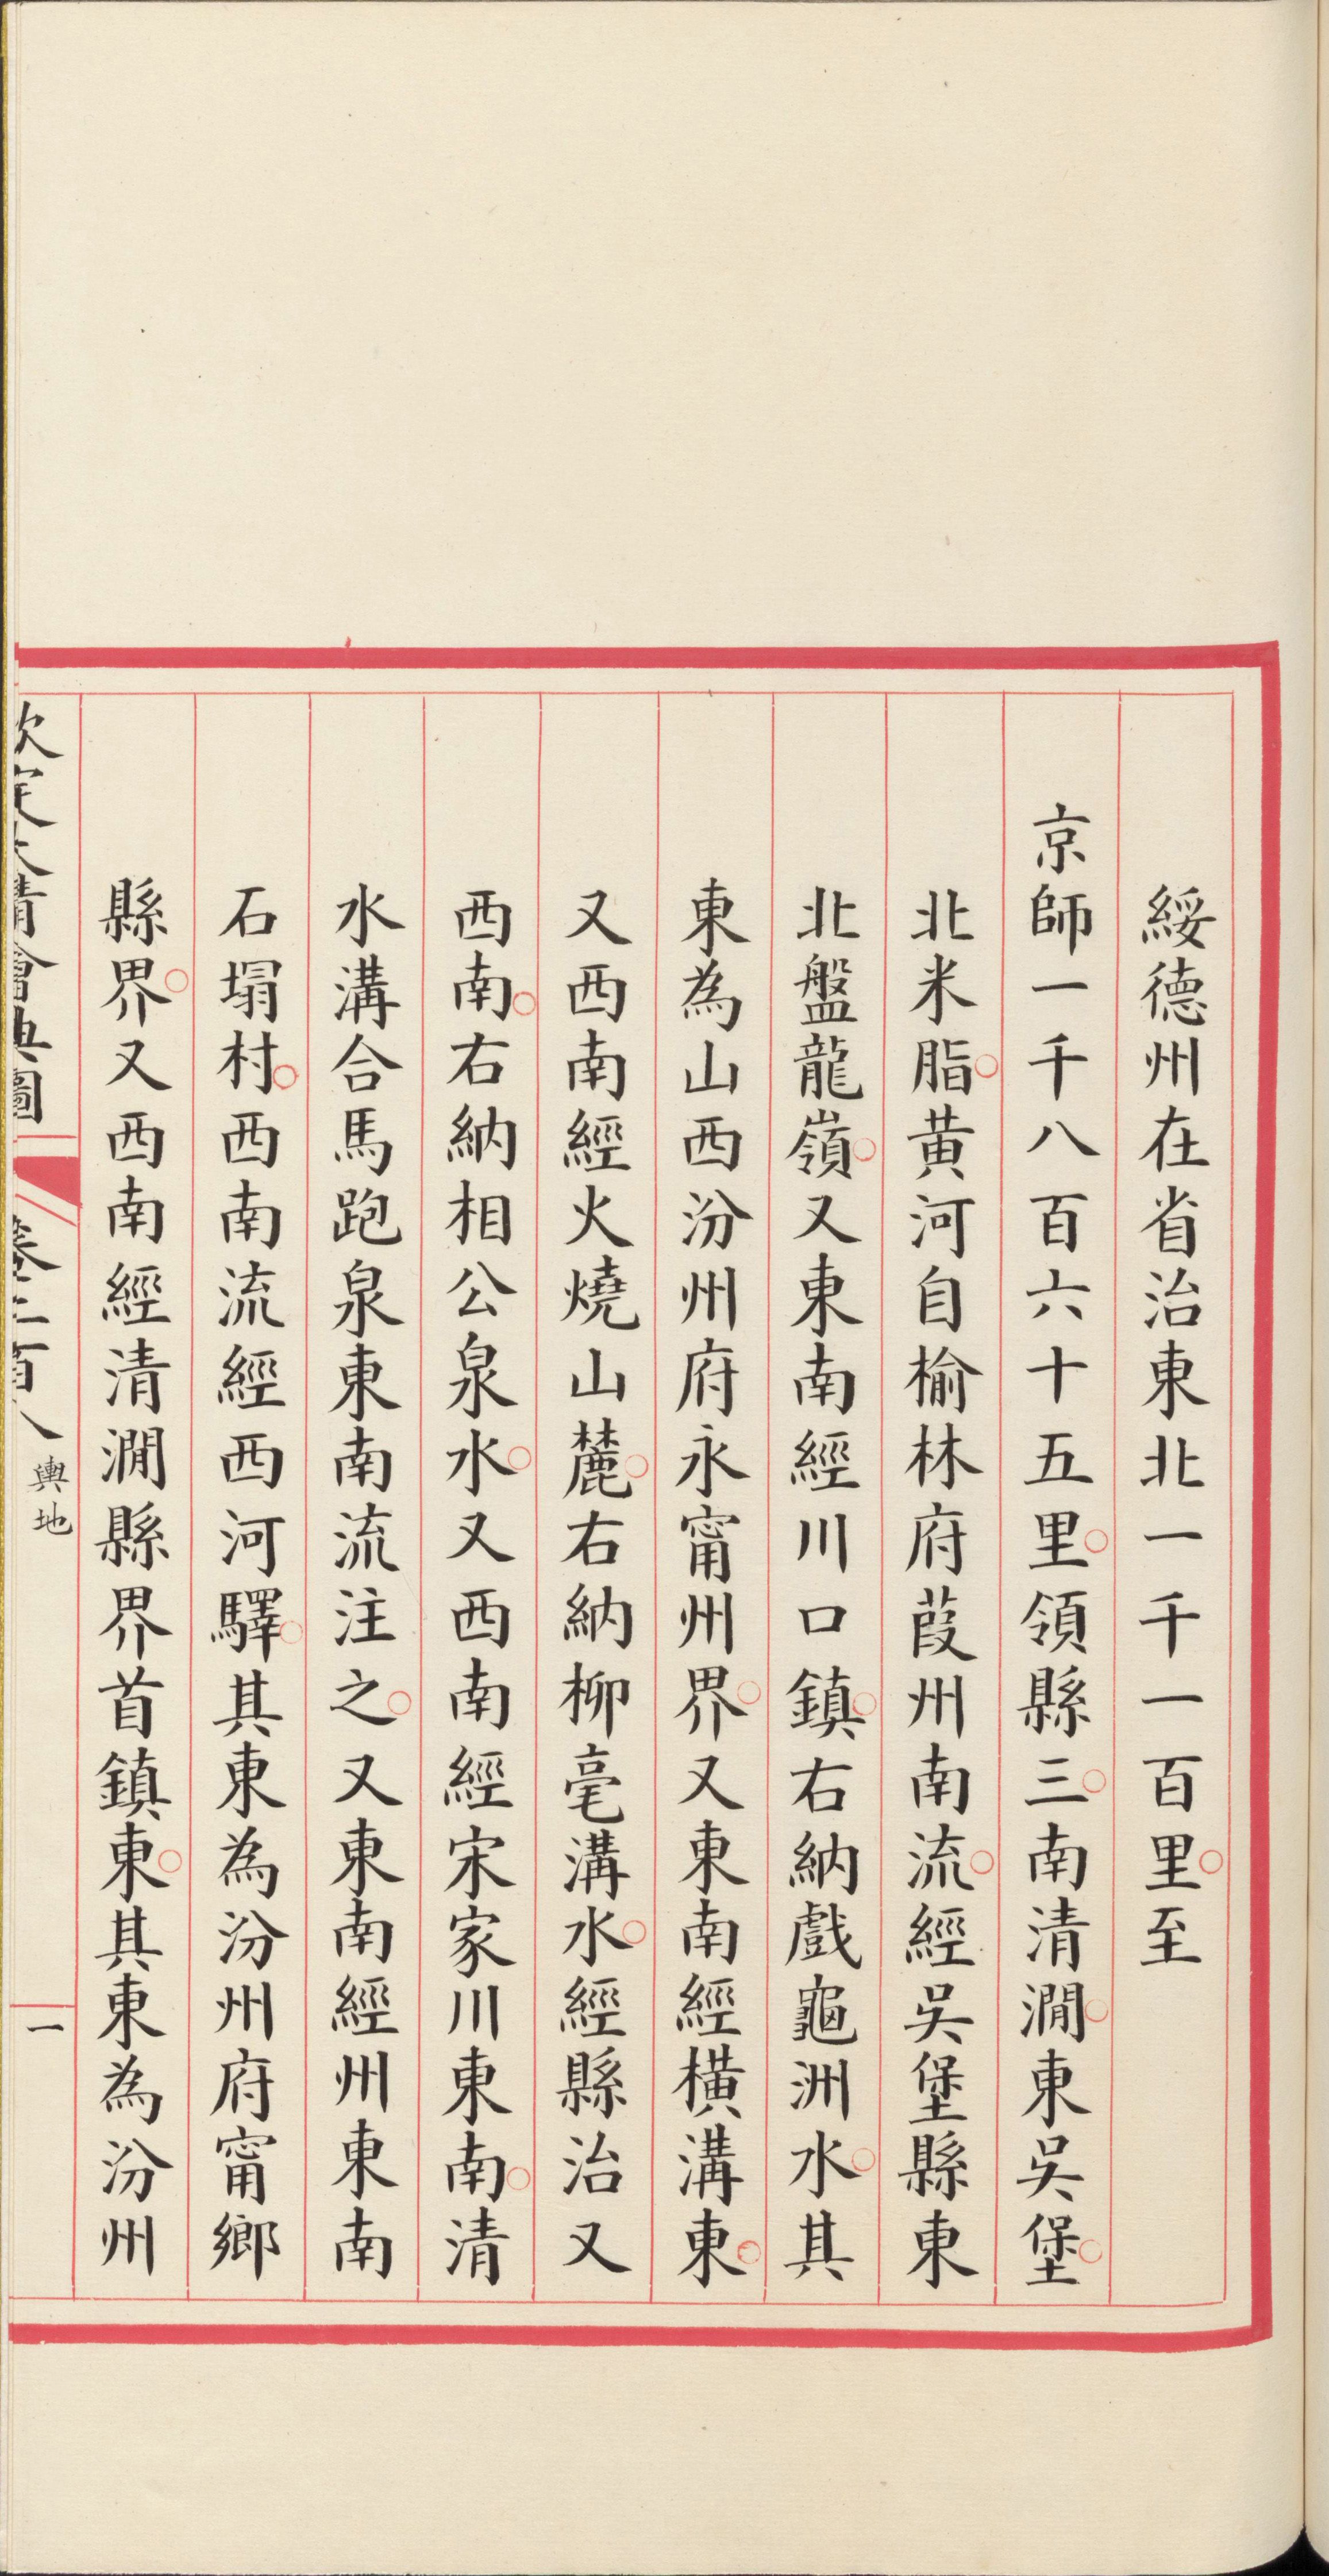 綏德州在省治東北一千一百里○至
京師一千八百六十五里○領縣三○南清澗○東吳堡○
北米脂○黄河自榆林府葭州南流○經吳堡縣東
北盤龍嶺○又東南經川口鎮○右納戲龜洲水○其
東為山西汾州府永甯州界○又東南經橫溝東○
又西南經火燒山麓○右納柳毫溝水○經縣治又
西南○右納相公泉水○又西南經宋家川東南○清
水溝合馬跑泉東東南流注之○又東南經州東南
石塌村○西南流經西河驛○其東為汾州府甯鄉
縣界○又西南經清澗縣界首鎮東○其東為汾州
欽定大清會典圖 卷二百八 輿地 一